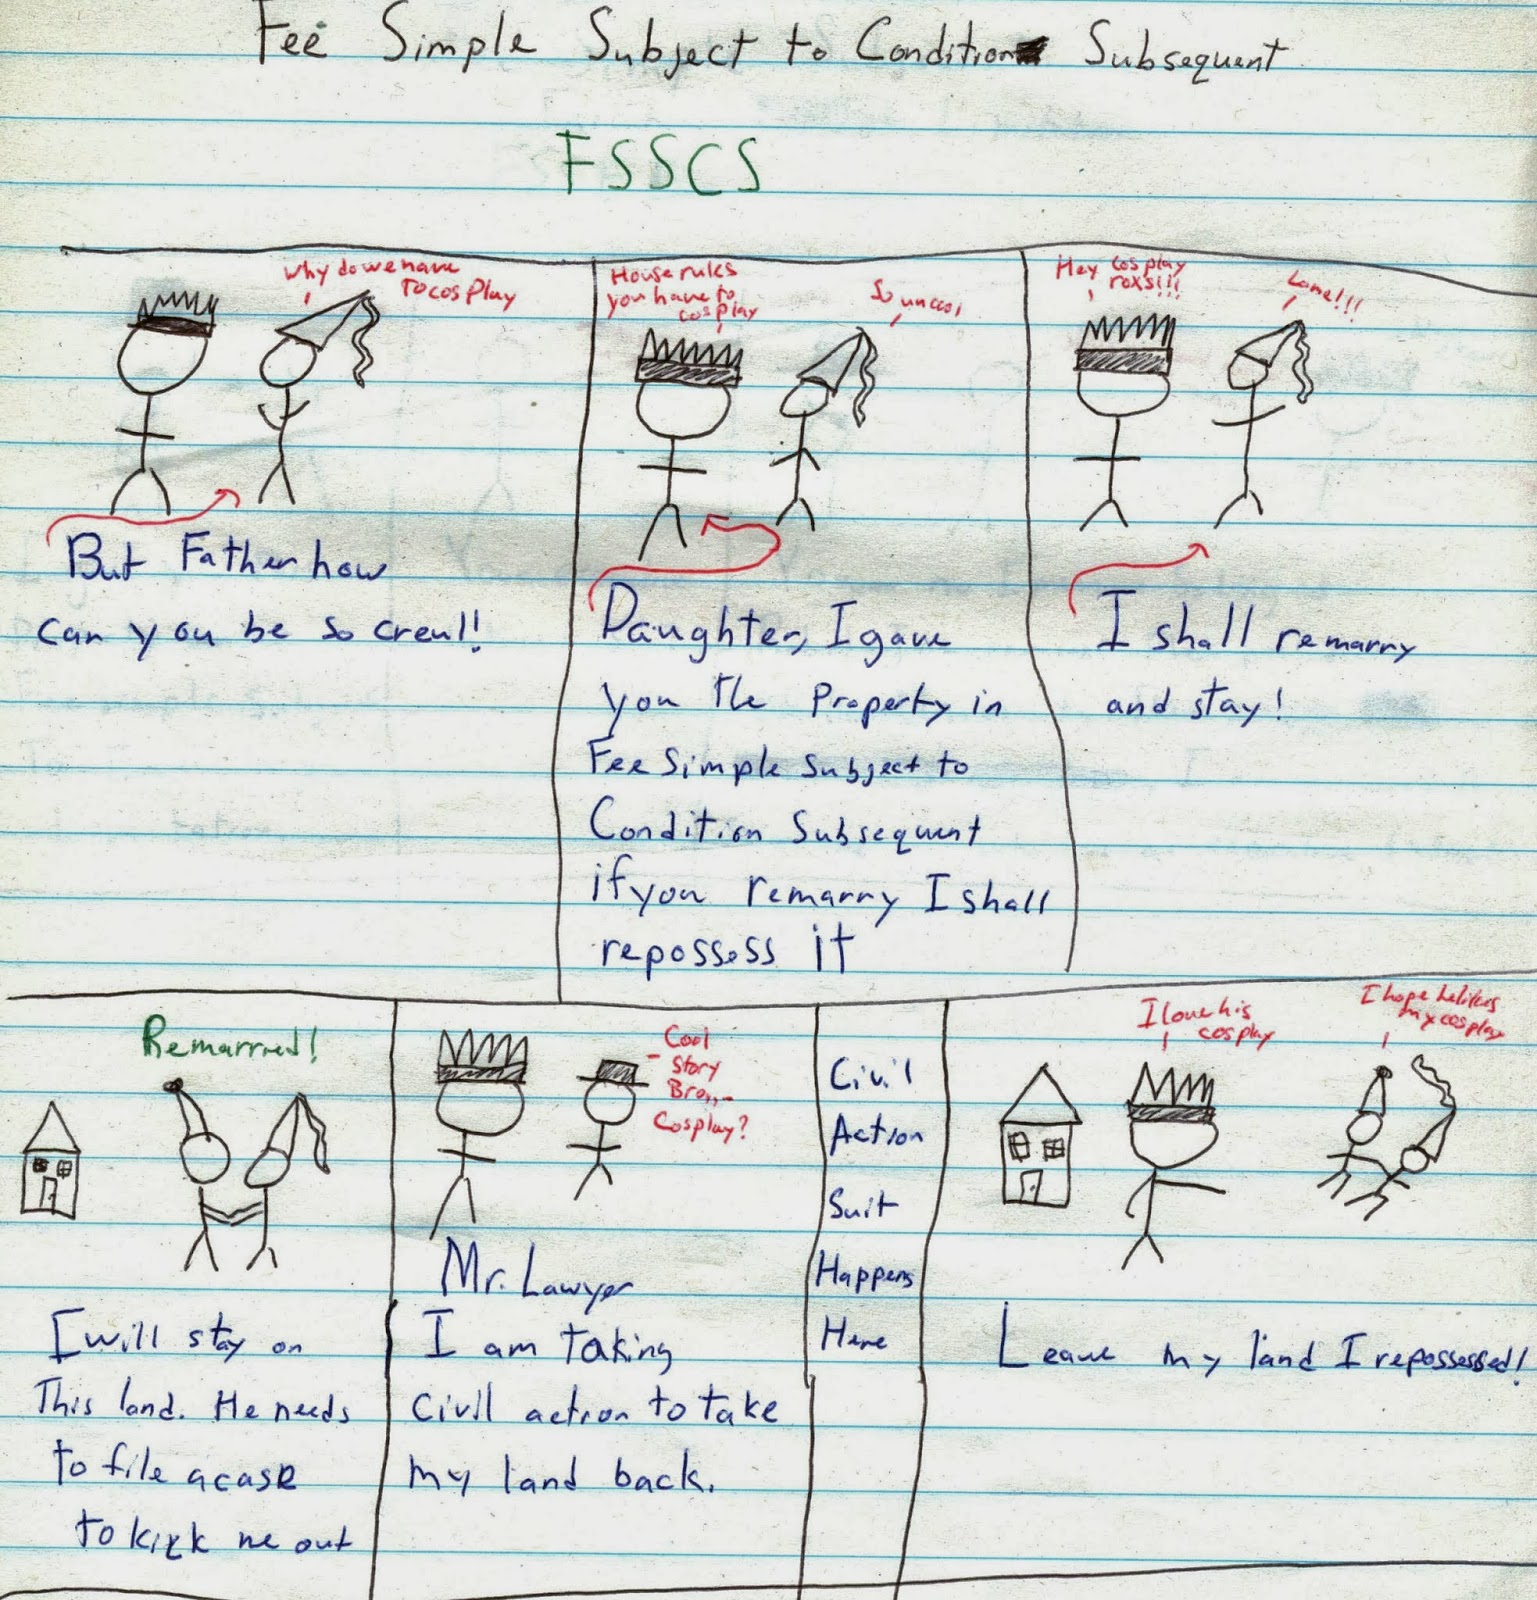 Fee Simple Subject to Condition Subsequent
FSSCS
Why do we have
to cosplay
But Father how
can you be so creul!
House rules
you have to
cosplay
So uncool
Daughter, I gave
you the Property in
Fee Simple Subject to
Condition Subsequent
if you remarry I shall
repossess it
Hey cosplay
roxs!!!
Lame!!!
I shall remarry
and stay!
Remarried!
I will stay on
This land. He needs
to file a case
to kick me out
Cool
Story
Bro,,..
Cosplay?
Mr. Lawyer
I am taking
civil action to take
my land back.
Civil
Action
Suit
Happens
Here
I love his
cosplay
I hope he likes
my cosplay
Leave my land I repossessed!